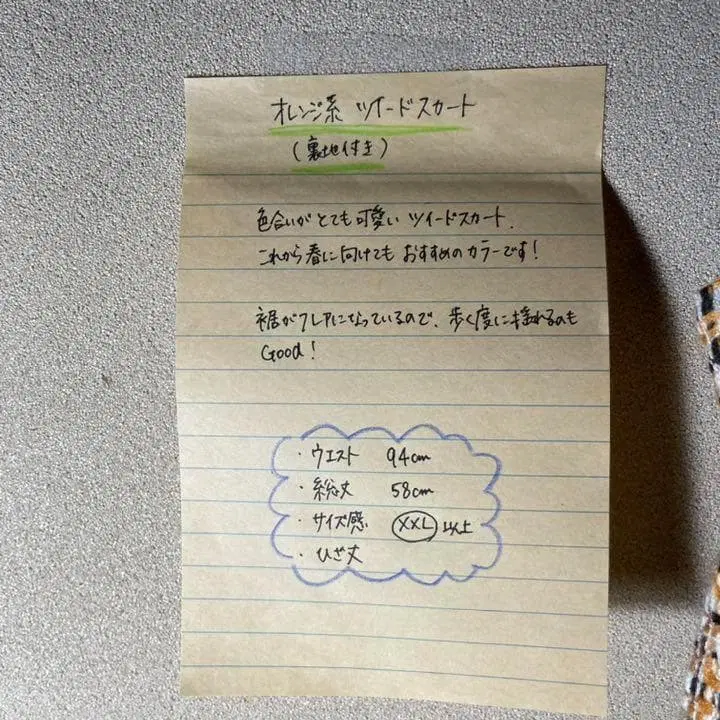 オレンジ系 ツイードスカート
(裏地付き)
色合いがとても可愛い ツイードスカート.
これから春に向けても おすすめのカラーです!
裾がフレアになっているので、歩く度に揺れるのも
Good!
・ウエスト 94cm
・総丈 58cm
・サイズ感 XXL 以上
・ひざ丈